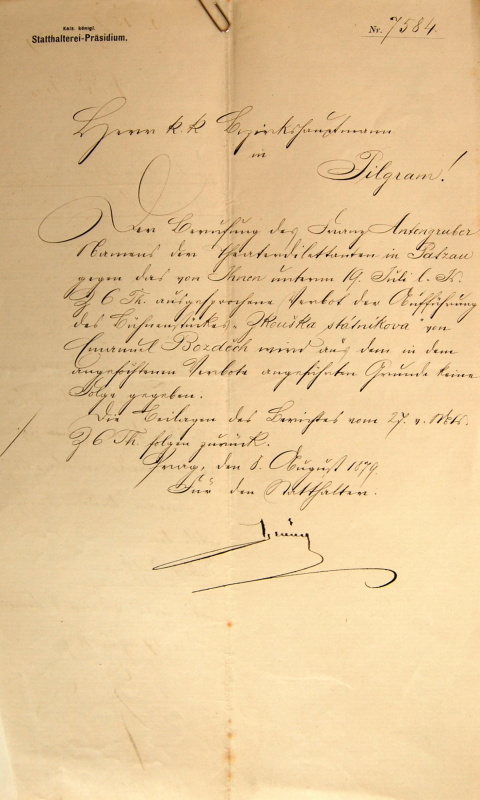 Kais. königl.
Statthalterei-Präsidium.
Nr. 7584.
Herr k. k. Bezirkshauptmann
in
Pilgram!
Der Berufung des Franz Antengruber
Namens der Theaterdilettanten in Patzau
gegen das von Ihnen unterm 19. Juli l. J.
Z 6 Th. ausgesprochene Verbot der Aufführung
des Bühnenstückes „Zkouška státníkova" von
Emanuel Bozděch wird aus dem in dem
angefochtenen Verbote angeführten Grunde keine
Folge gegeben.
Die Beilagen des Berichtes vom 27. v. Mts.
Z 6 Th. folgen zurück.
Prag, den 8. August 1879.
Für den Statthalter.